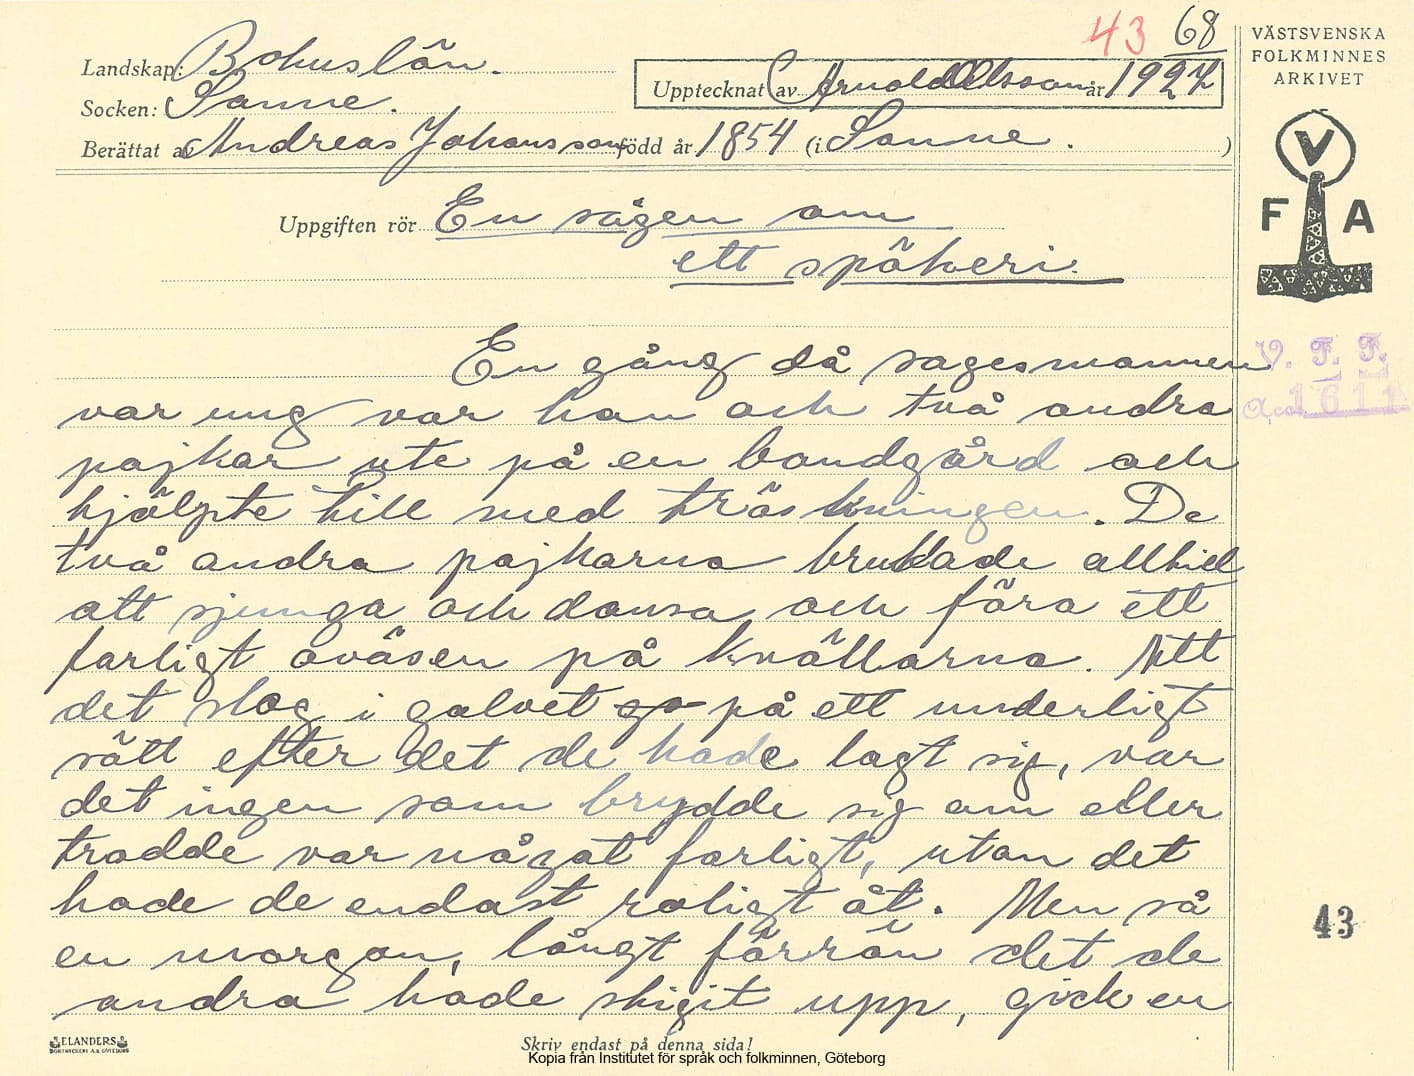 43 68
VÄSTSVENSKA
FOLKMINNES
ARKIVET
Landskap: Bohuslän.
Upptecknat av Arnold Olsson år 1927
Socken: Sanne.
Berättat av Andreas Johansson född år 1854 (i Sanne. )
V
F A
Uppgiften rör En sägen om
ett spökeri.
V. F. F.
Acc. 1611
En gång då sagesmannen
var ung var han och två andra
pojkar ute på en bondgård och
hjälpte till med tröskningen. De
två andra pojkarna brukade alltid
att sjunga och dansa och föra ett
farligt oväsen på kvällarna. Att
det slog i golvet på ett underligt
sätt efter det de hade lagt sig, var
det ingen som brydde sig om eller
trodde var något farligt, utan det
hade de endast roligt åt. Men så
en morgon, långt förrän det de
andra hade stigit upp, gick en
43
ELANDERS
BOKTRYCKERI A.B. GÖTEBORG
Skriv endast på denna sida!
Kopia från Institutet för språk och folkminnen, Göteborg